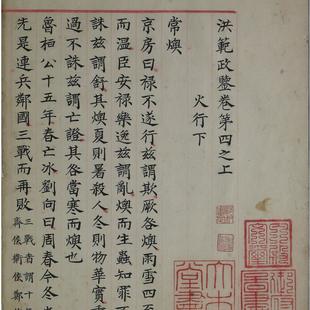 洪範政鑒卷第四之上
火行下
常燠
京房曰祿不遂行茲謂欺厥咎燠雨雪四至
而溫臣安祿樂逸茲謂亂燠而生蟲知罪不
誅茲謂舒其燠夏則暑殺人冬則物華實
過不誅茲謂亡證其咎當寒而燠也
魯桓公十五年春亡冰劉向曰周春今冬
先是連兵鄰國三戰而再敗三戰者謂十
齊侯衞侯鄭